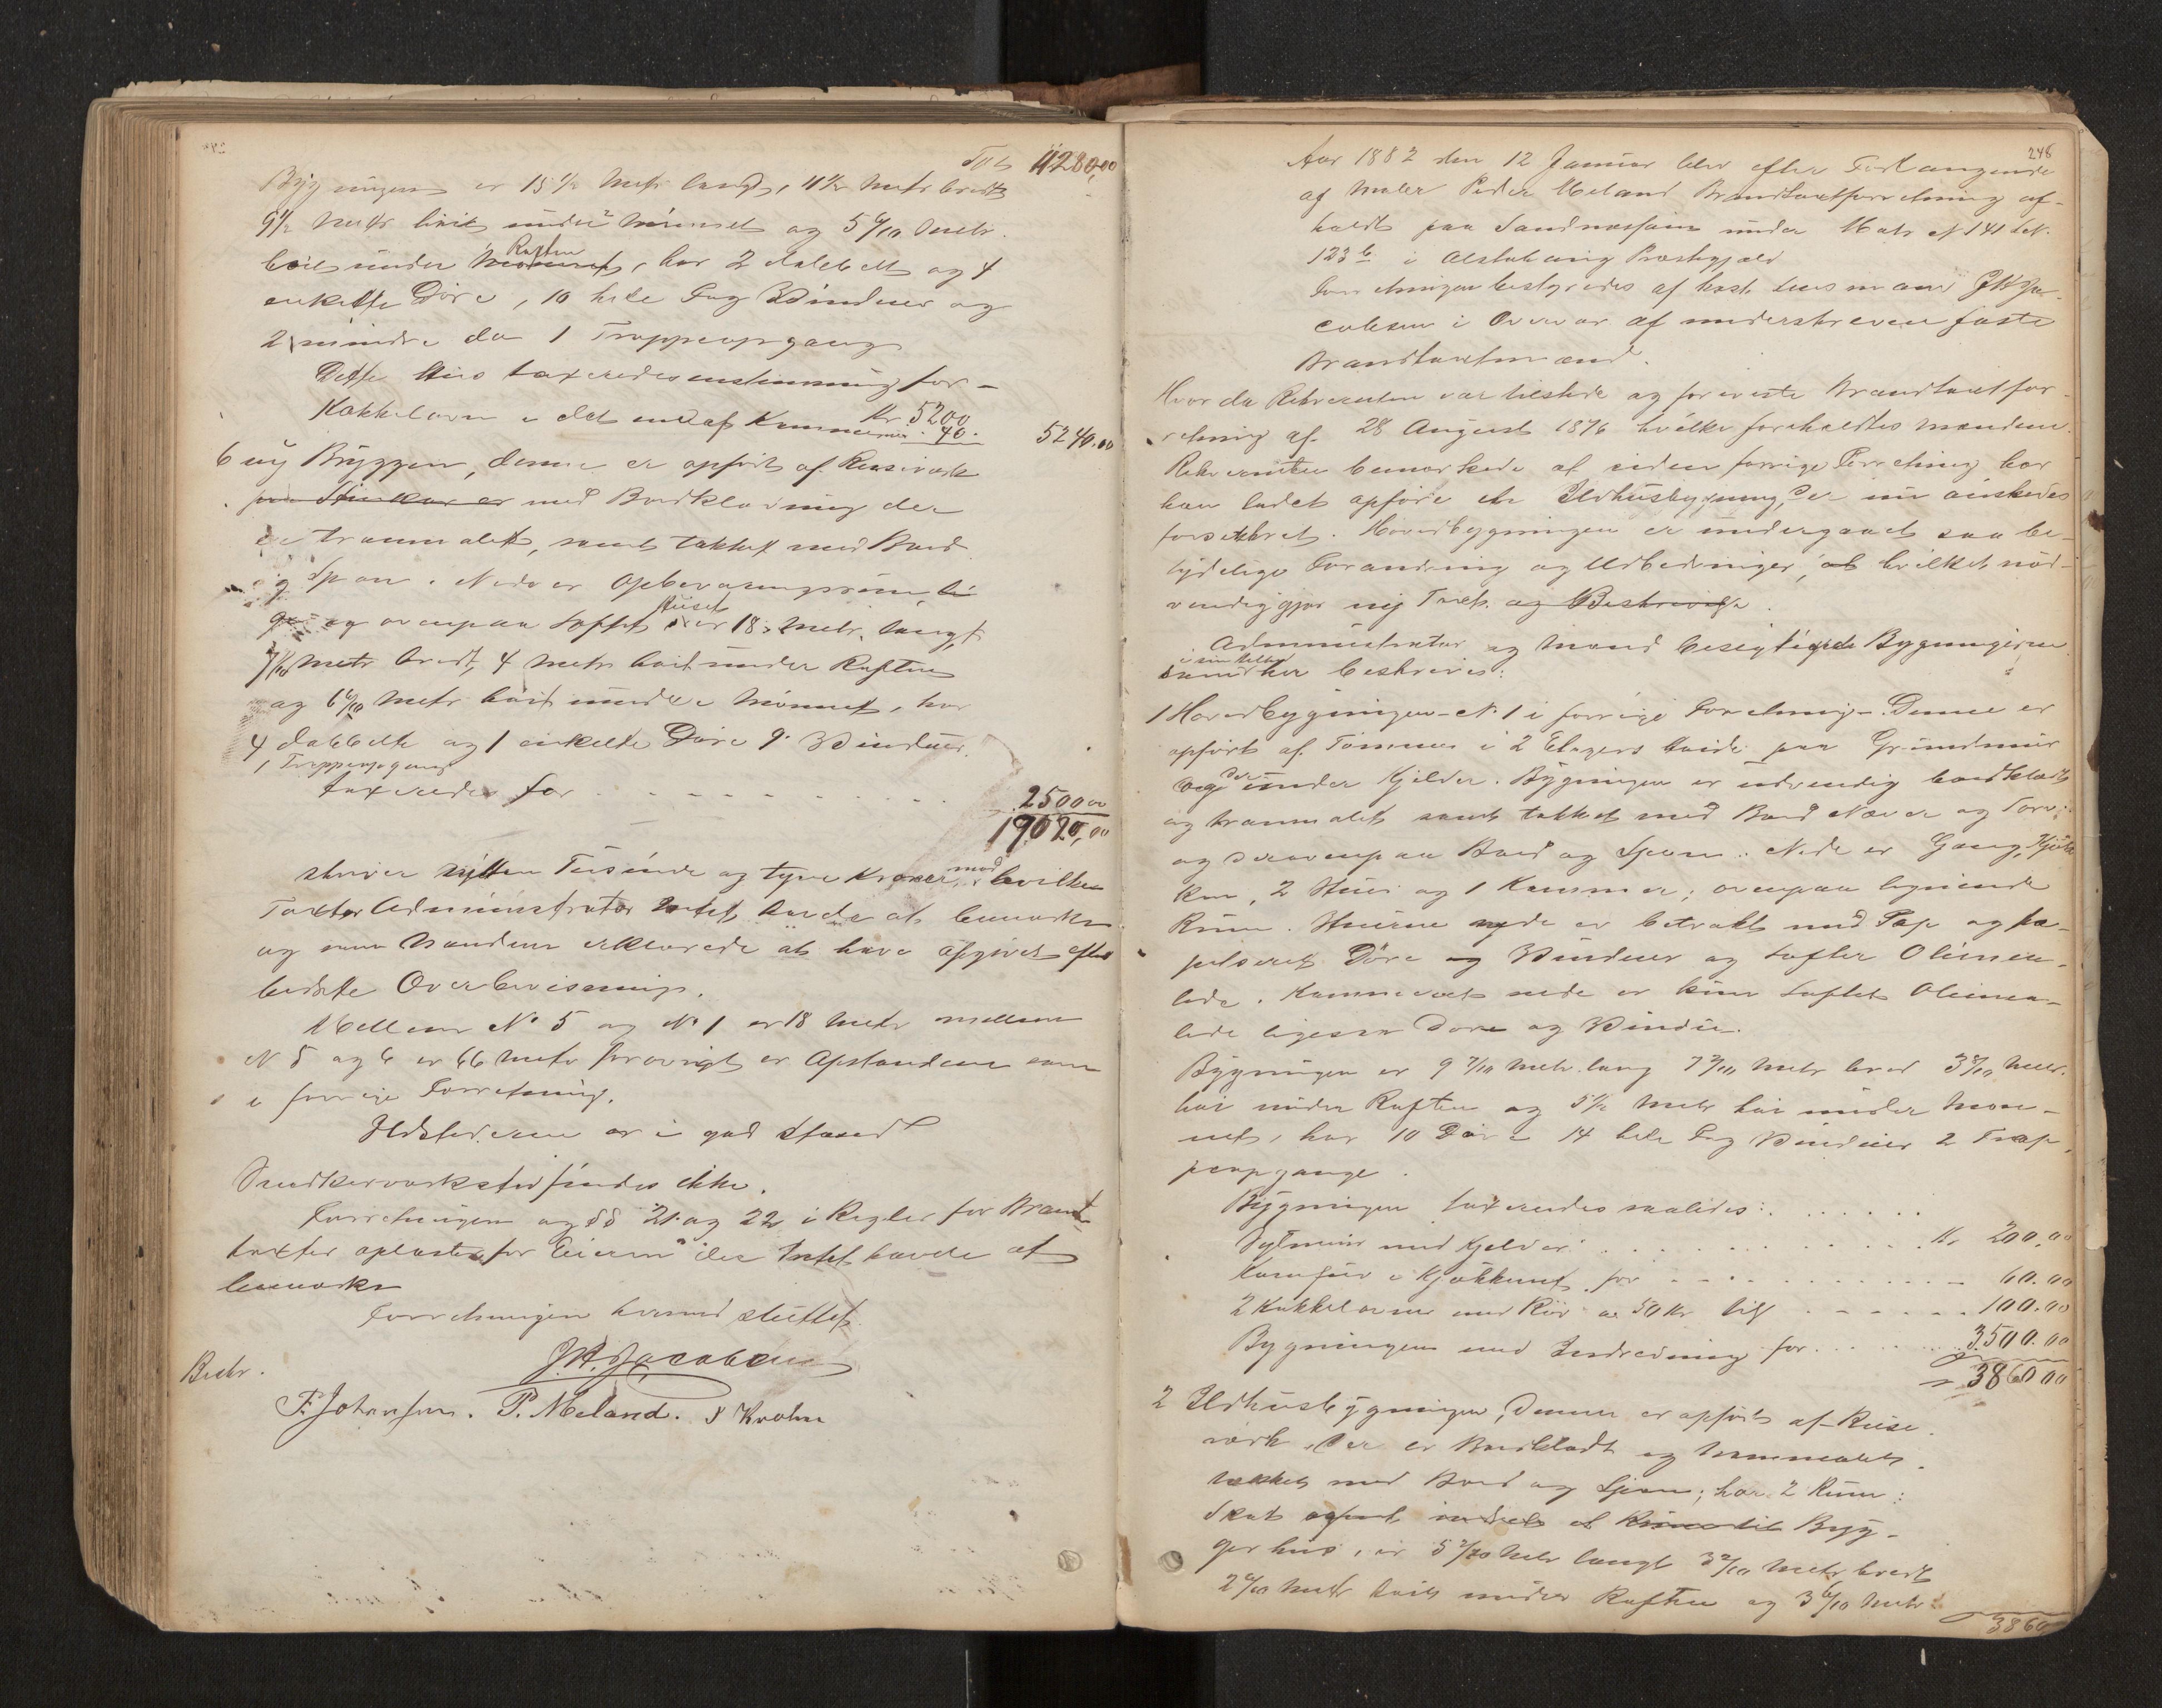 Tils 11280,00
Bygningen er 15 1/2 Metr langt, 11 1/2 Metr bredt
9 1/2 Metr høit under Mønnet og 5 6/10 Metr
høit under Mønnet Raften, har 2 dobbelte og 4
enkelte Døre, 10 hele Fag Vinduer og
2 mindre do 1 Trappeopgang
Dette Huus taxeredes enstemmig for –
Kr. 5200
Kakkelovn i det ene af Kammerne 40. 5240.00
6 ny Bryggen, denne er opført af Reisværk
paa Stenkar er med Bordklædning der
er tranmalet, samt takket med Bord
og Spon. Nede er Opbevaringsrum, li
ge og ovenpaa Loftet Huset er 18 Metr. langt,
Metr bredt, 4 Metr høit under Raften
og 6 6/10 Metr høit under Mønnet, har
4 dobbelte og 1 enkelte Døre 9 Vinduer
1 Trappeopgang
taxeredes for 2500 00
19020,00
skriver nitten Tusinde og tyve Kroner, mod hvilken
Taxt Administrator Intet havde at bemærke
og som Mændene erklærede at have afgivet efter
bedste Overbevisning.
Mellem No 5 og No 1 er 18 Metr mellem
N 5 og 6 er 66 Metr forøvrigt er Afstandene som
i forrige Forretning.
Ildstederne er i god Stand
Snedkerværksted findes ikke.
Forretningen og §§ 21 og 22 i Regler for Brand
taxter oplæstes for Eieren der Intet havde at
bemærke
Forretningen hermed sluttet.
J.K. Jacobsen
Beskr.
F. Johansen. P. Meland. S Krohn
248
Aar 1882 den 12 Januar blev efter Forlangende
af Maler Peder Meland Brandtaxtforretning af-
holdt paa Sandnessjøen under Matr N 141 Løb.
123 b i Alstahaug Præstegjæld
Forretningen bestyredes af Lensmand JK Ja-
cobsen i Overvær af underskrevne faste
Brandtaxtmænd.
Hvorda Rekvirenten var tilstede og foreviste Brandtaxtfor-
retning af 28 August 1876 hvilke foreholdtes Mændene.
Rekvirenten bemærkede at siden forrige Forretning har
han ladet opføre en Ildhusbygning, der nu ønskedes
forsikkret. Hovedbygningen er undergaaet saa be-
tydelige Forandring og Udbedringer, at hvilket nød-
vendiggjør ny Taxt. og Beskrivelse.
Administrator og Mænd besigtigede Bygningerne
som i sin helhed her beskrives:
1 Hovedbygningen N. 1 i forrige Forretning – Denne er
opført af Tømmer i 2 Etagers Høide paa Grundmur
og derunder Kjelder. Bygningen er udvendig bordklædt
og tranmalet samt takket med Bord Næver og Torv
og derovenpaa Bord og Spon. Nede er Gang, Kjøk
ken, 2 Stuer og 1 Kammer; ovenpaa lignende
Rum. Stuerne nede er betrukket med Pap og ta-
petseret Døre og Vinduer og Lofter Oliema-
lede. Kammerset nede er kun Loftet Oliema-
lede ligesaa Døre og Vindue.
Bygningen er 9 7/10 Metr lang 7 7/10 Metr bred 3 8/10 Metr.
høi under Raften og 5 1/2 Metr høi under Møn-
net, har 10 Døre 14 hele Fag Vinduer 2 Trap
peopgange.
Bygningen taxeredes saaledes:
Sylmuur med Kjelder Kr 200.00
Komfur i Kjøkkenet for 60.00
2 Kakkelovne med Rør a 50 Kr til 100.00
Bygningen med Indredning for 3500.00
3860 00
2 Ildhusbygningen, Denne er opført af Reise
værk, der er Bordklædt og tranmalet,
takket med Bord og Spon; har 2 Rum:
Skot Byg-
gerhus, er 5 7/10 Metr langt 3 7/10 Metr bredt
2 6/10 Metr høit under Raften og 3 6/10 Metr
3860